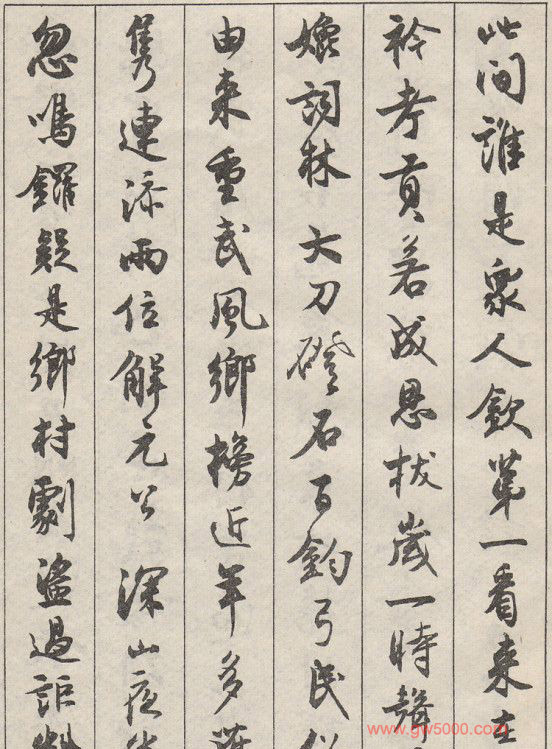 此间誰是衆人欽第一看來在
衿考貢若成恩拔歲一時聲
媲詞林 大刀磴石百鈞弓民
由來重武風鄉榜近年多
雋連添兩位解元公 深山夜
忽鳴鑼疑是鄉村劇盜過詎料
www.gw5000.com